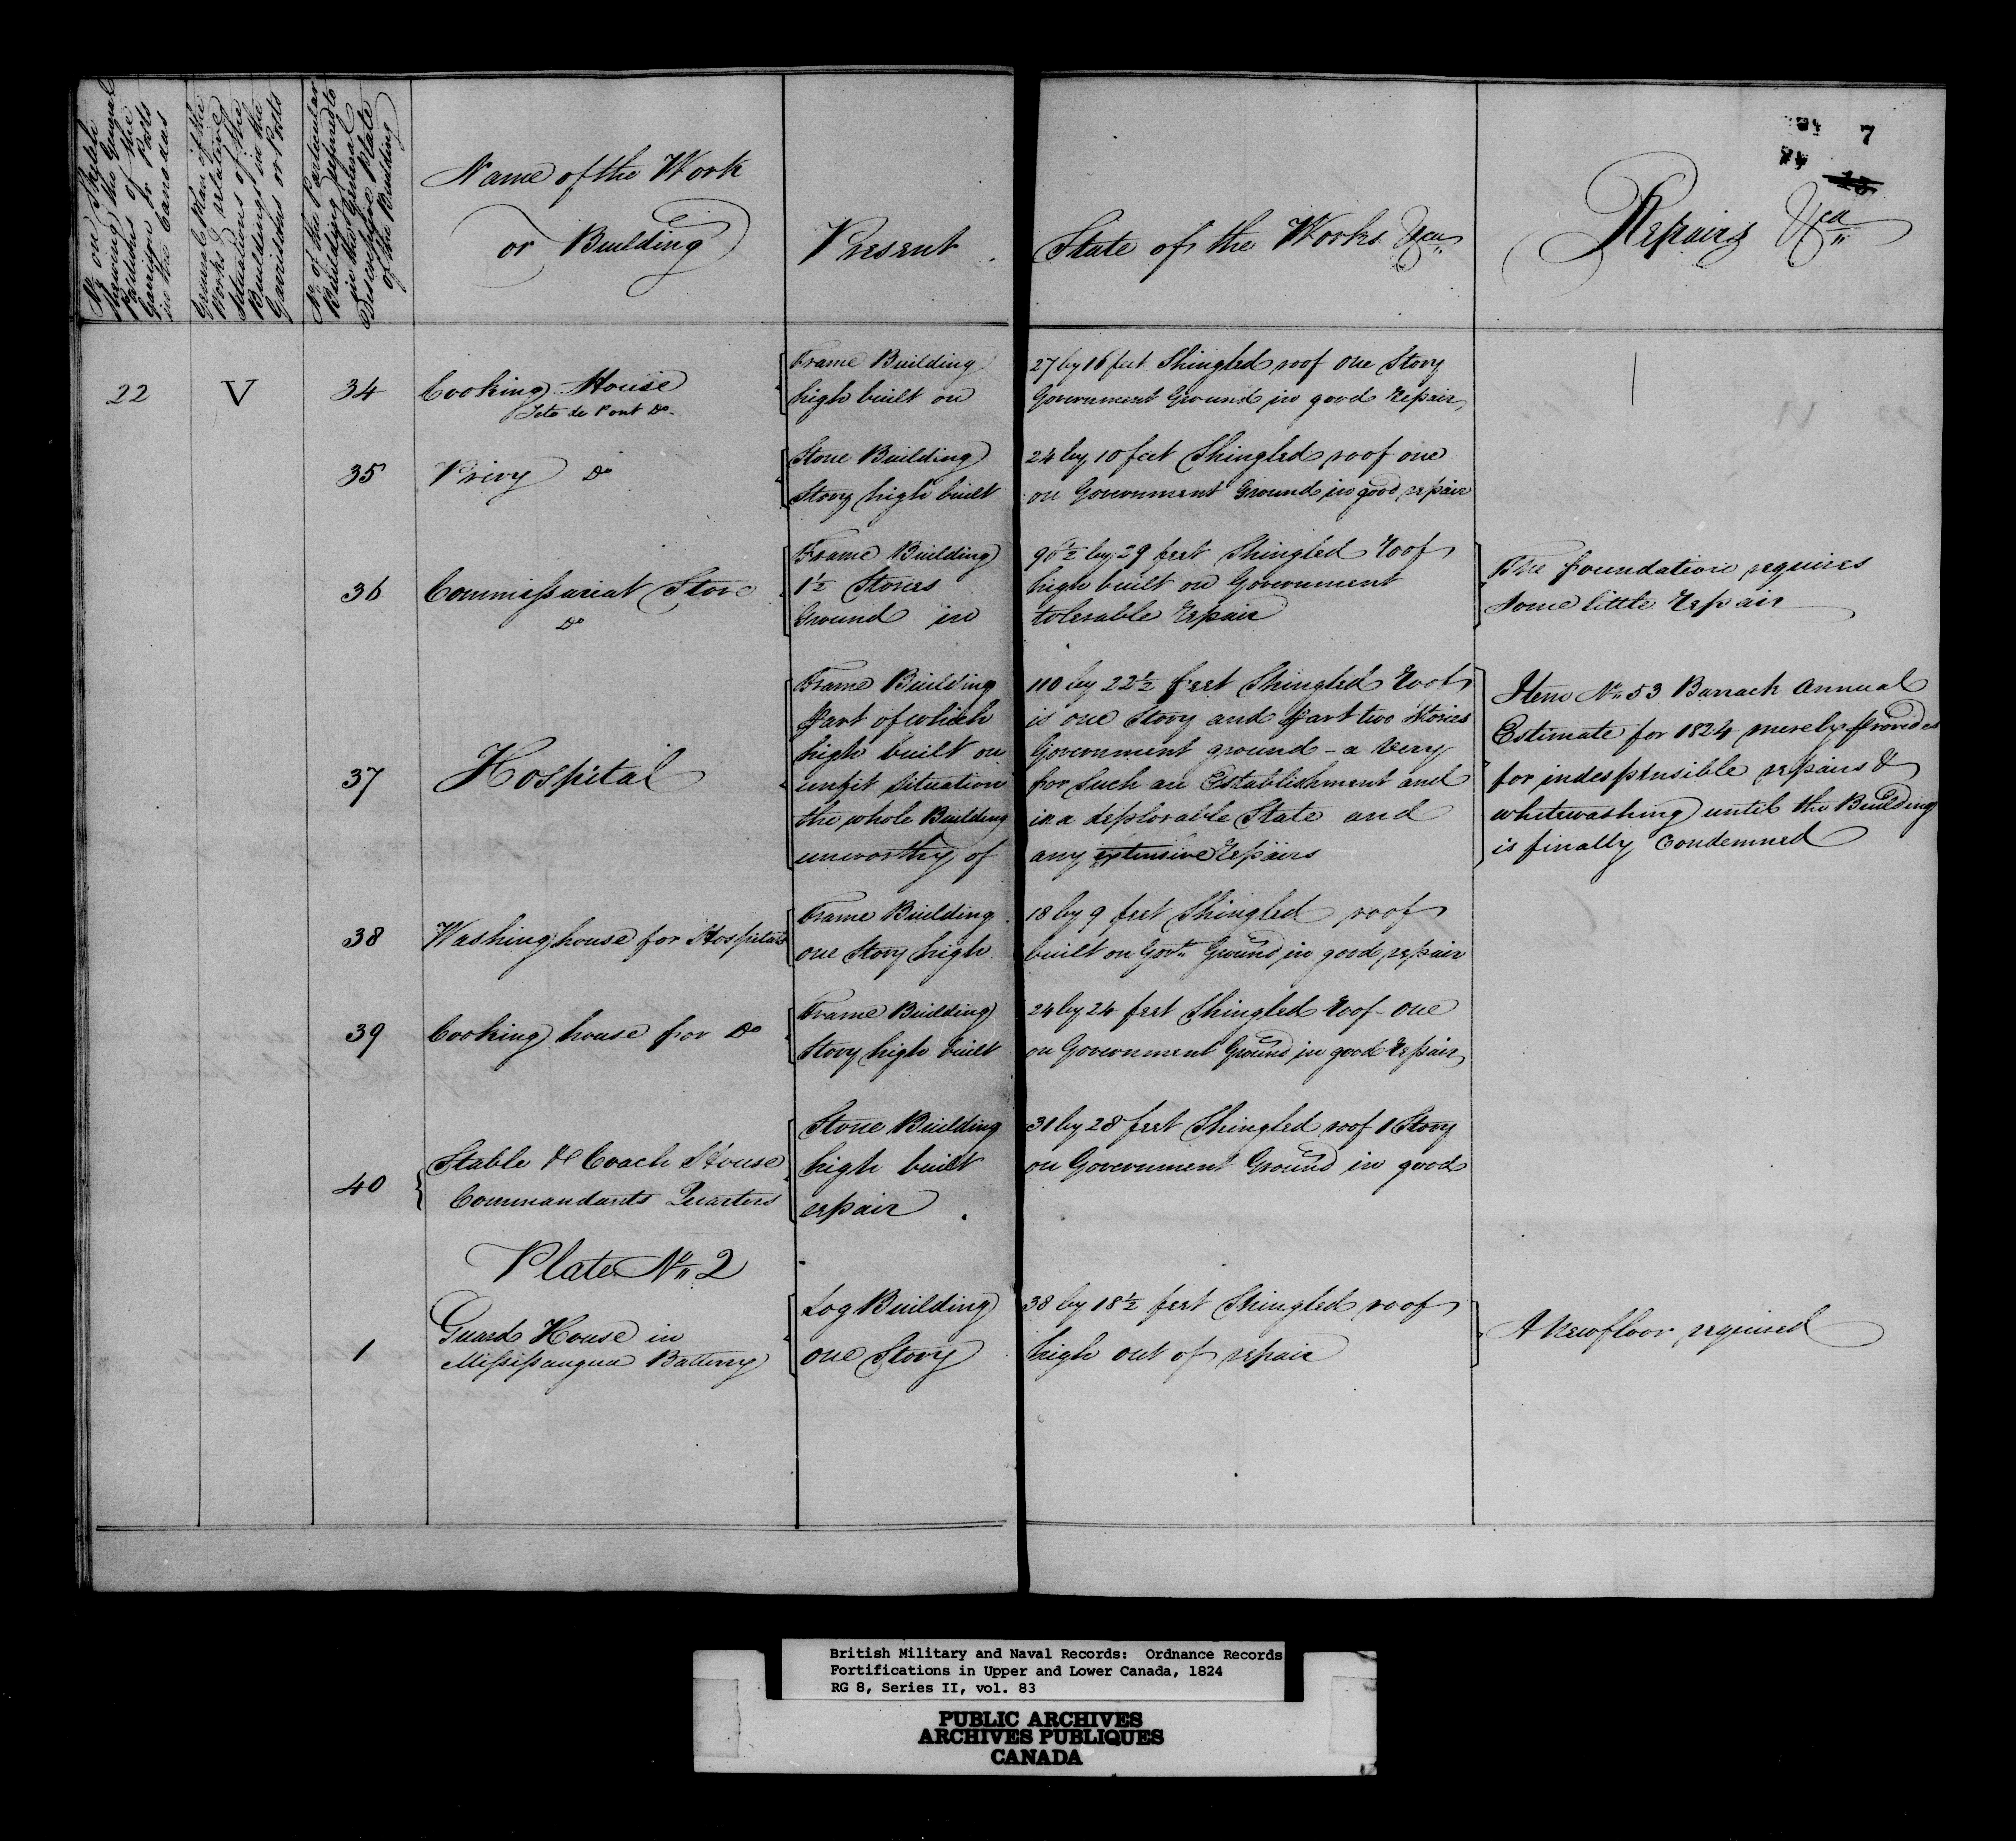 No on Sketch
shewing the General
Positions of the
Garrisons or Posts
in the Canadas
General Plan of the
Works & relative
Situations of the
Buildings in the
Garrisons or Posts
No of the Particular
Building referred to
in the General
Descriptive Plate
of the Building
Name of the Work
or Building
Present
State of the Works &ca
Repairs &ca
7
22 V 34 Cooking House
Tete de Pont Do
Frame Building 27 by 16 feet Shingled roof One Story
high built on Government Ground in good repair
35 Privy Do
Stone Building 24 by 10 feet Shingled roof one
Story high built on Government Ground in good repair
36 Commissariat Store
Do
Frame Building 90½ by 29 feet Shingled roof
1½ Stories high built on Government
Ground in tolerable repair
The foundation requires
some little repair
37 Hospital
Frame Building 110 by 22½ feet Shingled roof
part of which is one Story and part two Stories
high built on Government ground - a very
unfit situation for such an Establishment and
the whole Building in a deplorable State and
unworthy of any extensive repairs
Item No 53 Barrack Annual
Estimate for 1824 merely provides
for indespensible repairs &
whitewashing until the Building
is finally Condemned
38 Washing house for Hospital
Frame Building 18 by 9 feet Shingled roof
one Story high built on Govt Ground in good repair
39 Cooking house for Do
Frame Building 24 by 24 feet Shingled roof - one
Story high built on Government Ground in good repair
40 Stable & Coach House
Commandants Quarters
Stone Building 31 by 28 feet Shingled roof 1 Story
high built on Government Ground in good
repair
Plate No 2
1 Guard House in
Missisaugua Battery
Log Building 38 by 18½ feet Shingled roof
one Story high out of repair
A new floor required
British Military and Naval Records: Ordnance Records
Fortifications in Upper and Lower Canada, 1824
RG 8, Series II, vol. 83
PUBLIC ARCHIVES
ARCHIVES PUBLIQUES
CANADA